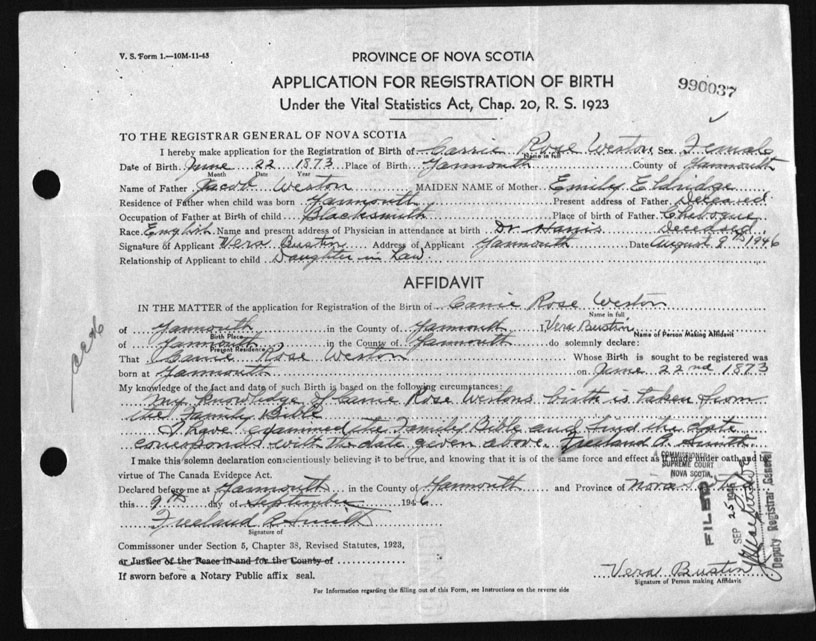 V. S. Form 1.—10M-11-43
PROVINCE OF NOVA SCOTIA
APPLICATION FOR REGISTRATION OF BIRTH
990037
Under the Vital Statistics Act, Chap. 20, R. S. 1923
TO THE REGISTRAR GENERAL OF NOVA SCOTIA
I hereby make application for the Registration of Birth of Carrie Rose Weston Sex Female
Name in full
Date of Birth June 22 1873 Place of Birth Yarmouth County of Yarmouth
Month Date Year
Name of Father Jacob Weston MAIDEN NAME of Mother Emily Eldridge
Residence of Father when child was born Yarmouth Present address of Father Deceased
Occupation of Father at Birth of child Blacksmith Place of birth of Father Chebogue
Race English Name and present address of Physician in attendance at birth Dr Harris Deceased
Signature of Applicant Vera Bustin Address of Applicant Yarmouth Date August 9th 1946
Relationship of Applicant to child Daughter in Law
AFFIDAVIT
IN THE MATTER of the application for Registration of the Birth of Carrie Rose Weston
Name in full
of Yarmouth in the County of Yarmouth I, Vera Bustin
Birth Place Name of Person Making Affidavit
of Yarmouth in the County of Yarmouth do solemnly declare:
Present Residence
That Carrie Rose Weston Whose Birth is sought to be registered was
born at Yarmouth on June 22nd 1873
My knowledge of the fact and date of such Birth is based on the following circumstances:
My knowledge of Carrie Rose Westons birth is taken from
the Family Bible
I have examined the Family Bible and find the date
corresponds with the date given above Freeland A. Smith
A COMMISSIONER
SUPREME COURT
NOVA SCOTIA
I make this solemn declaration conscientiously believing it to be true, and knowing that it is of the same force and effect as if made under oath and by
virtue of The Canada Evidence Act.
Declared before me at Yarmouth in the County of Yarmouth and Province of Nova Scotia
this 9th day of September 1946
Freeland A Smith
Signature of
FILED
SEP 25 1946
Deputy Registrar General
Commissioner under Section 5, Chapter 38, Revised Statutes, 1923,
or Justice of the Peace in and for the County of
If sworn before a Notary Public affix seal.
Vera Bustin
Signature of Person making Affidavit
For Information regarding the filling out of this Form, see Instructions on the reverse side